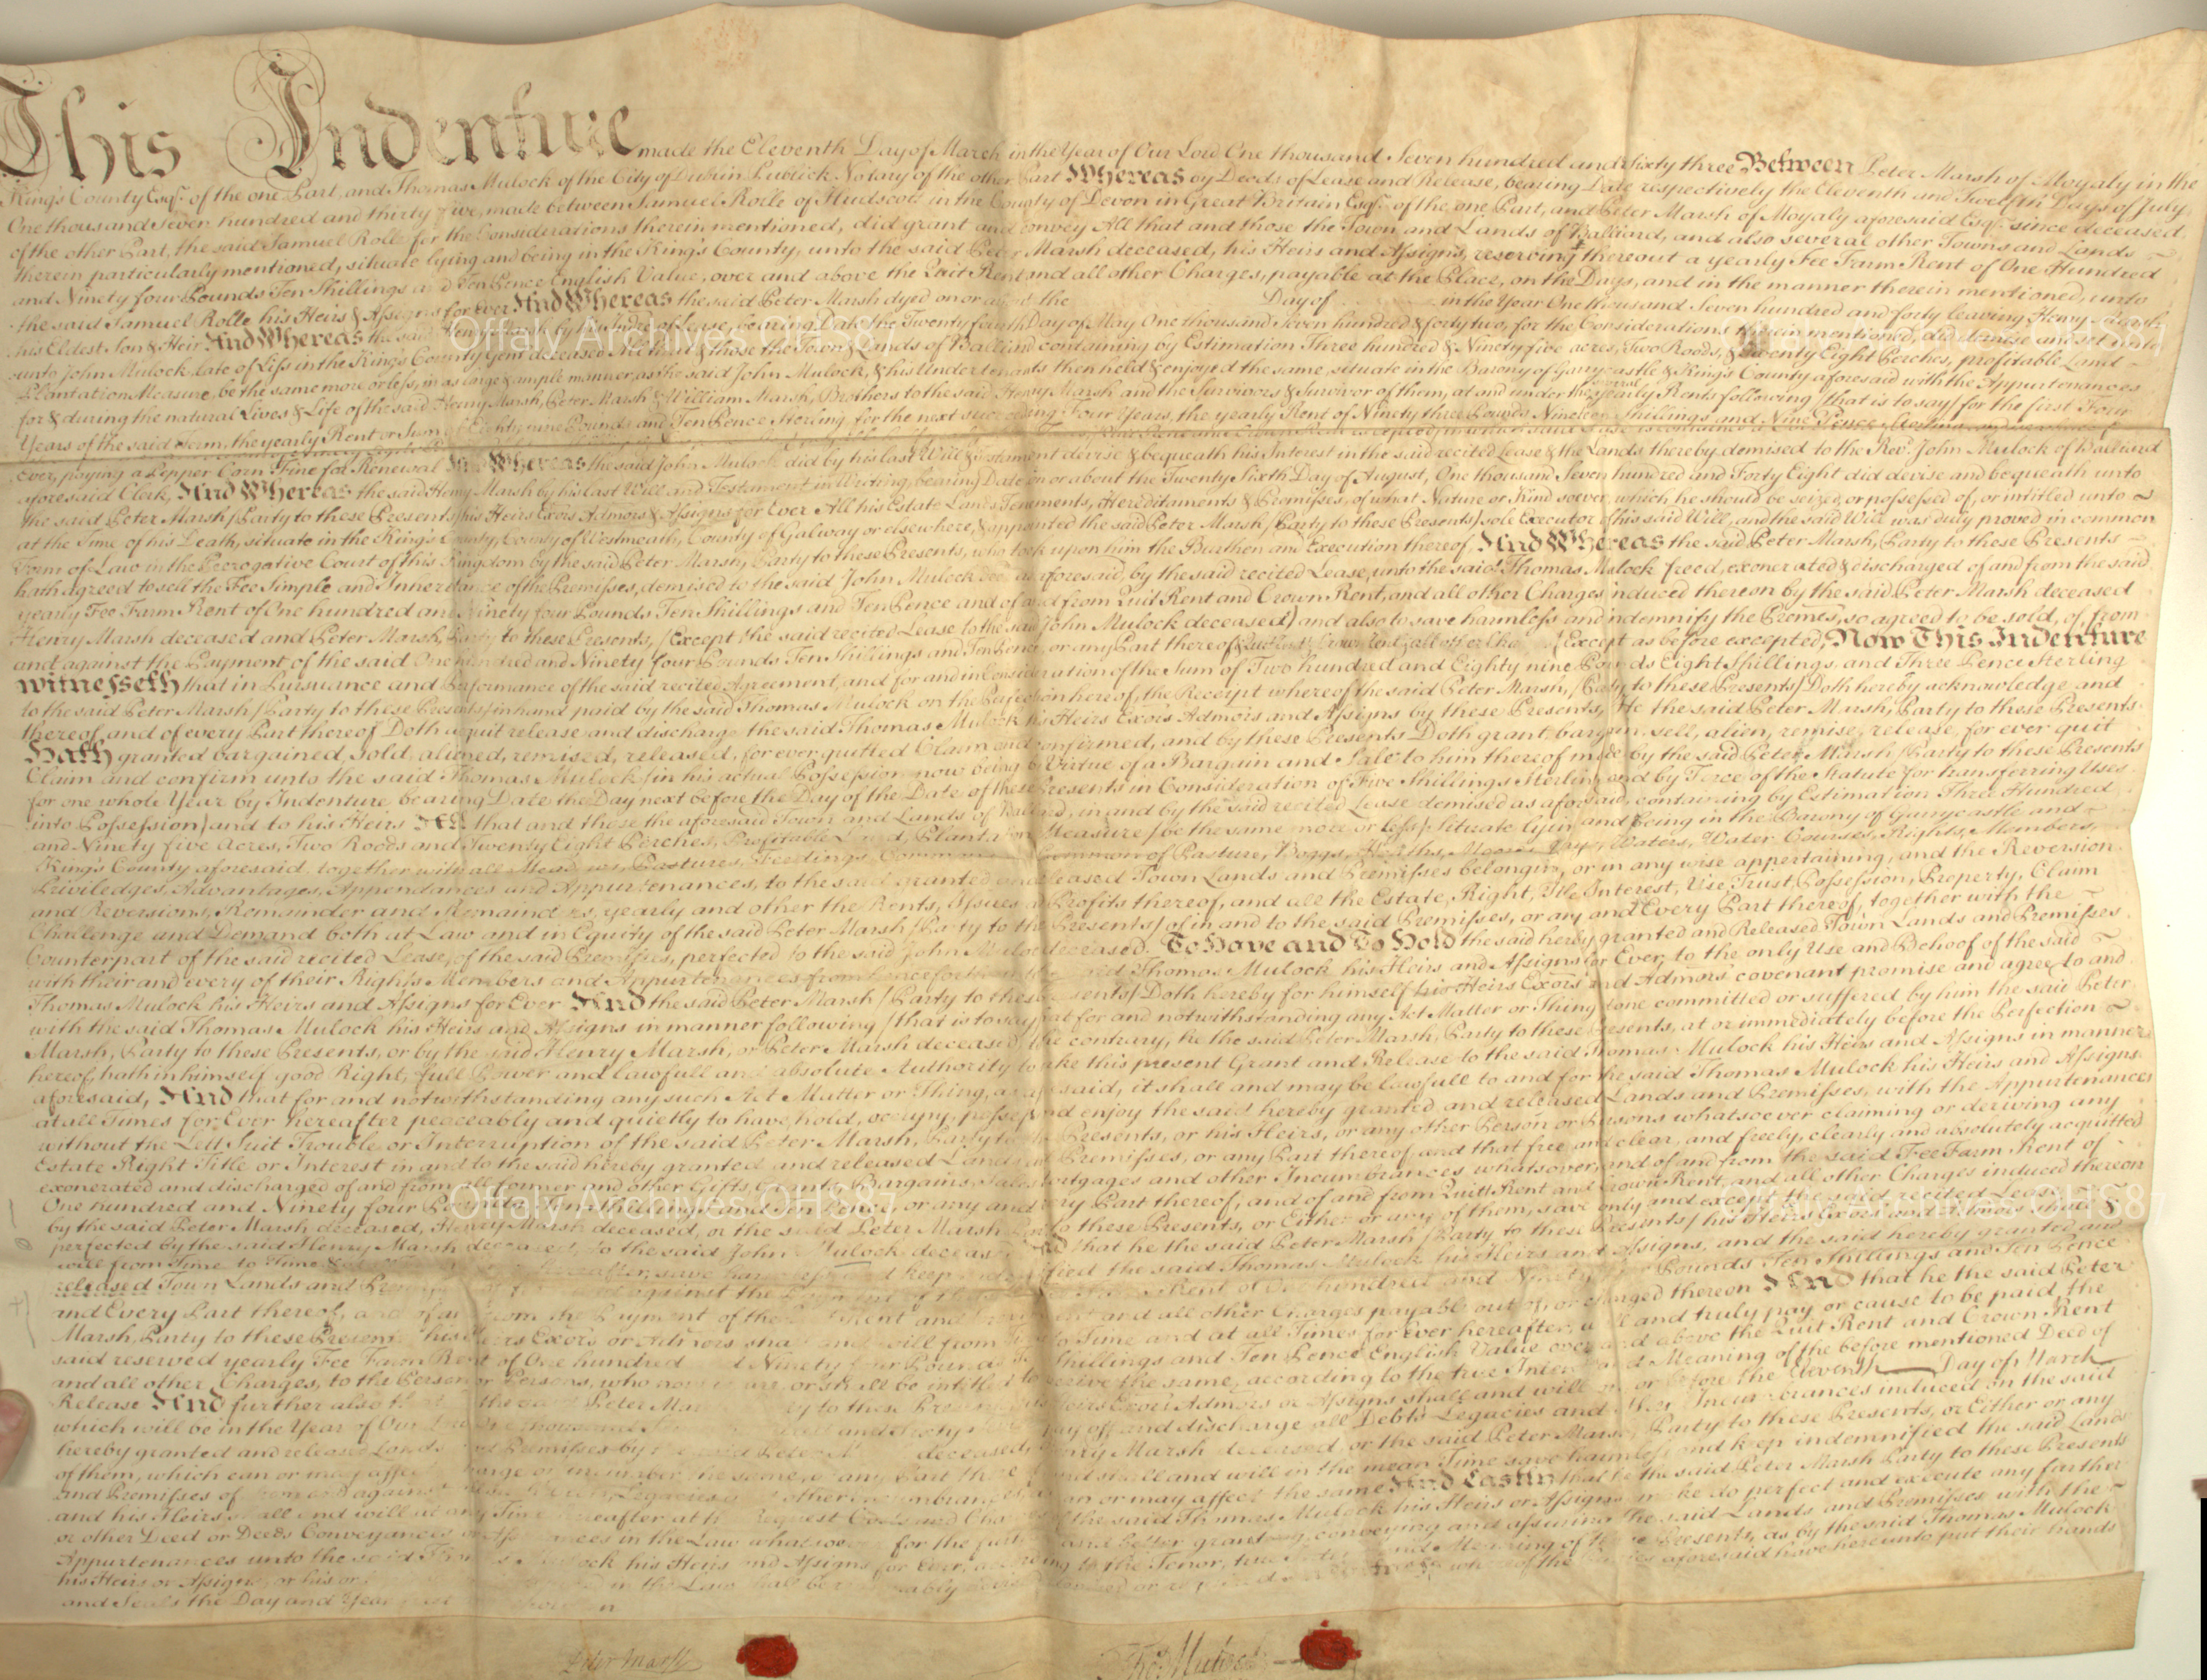 This Indenture made the Eleventh Day of March in the Year of Our Lord One thousand Seven hundred and Sixty three Between Peter Marsh of Moyaly in the
King's County Esqr. of the one Part, and Thomas Mulock of the City of Dublin Publick Notary of the other Part Whereas by Deeds of Lease and Release, bearing Date respectively the Eleventh and Twelfth Days of July
One thousand Seven hundred and thirty five, made between Samuel Rolle of Hudscott in the County of Devon in Great Britain Esqr. of the one Part, and Peter Marsh of Moyaly aforesaid Esqr. since deceased
of the other Part, the said Samuel Rolle for the Considerations therein mentioned, did grant and convey All that and those the Town and Lands of Balliard, and also several other Towns and Lands
therein particularly mentioned, situate lying and being in the King's County, unto the said Peter Marsh deceased, his Heirs and Assigns, reserving thereout a yearly Fee Farm Rent of One Hundred
and Ninety four Pounds Ten Shillings and Ten Pence English Value, over and above the Quit Rent and all other Charges, payable at the Place, on the Days, and in the manner therein mentioned, unto
the said Samuel Rolle his Heirs & Assigns for Ever And Whereas the said Peter Marsh dyed on or about the Day of in the Year One thousand Seven hundred and forty leaving Henry Marsh
his Eldest Son & Heir And Whereas the said Henry Marsh by Indre of Lease, bearing Date the Twenty fourth Day of May One thousand Seven hundred & forty two, for the Considerations therein mentioned, did demise and set unto
unto John Mulock late of Liss in the King's County Gent deceased All that & those the Town & Lands of Balliard containing by Estimation Three hundred & Ninety five acres, Two Roods, & Twenty Eight Perches, profitable Land
Plantation Measure, be the same more or less, in as large & ample manner, as the said John Mulock, & his Undertenants then held & enjoyed the same, situate in the Barony of Garrycastle & King's County aforesaid with the Appurtenances
for & during the natural Lives & Life of the said Henry Marsh, Peter Marsh & William Marsh, Brothers to the said Henry Marsh and the Survivors & Survivor of them, at and under the several yearly Rents following (that is to say) for the first Four
Years of the said Term, the yearly Rent or Sum of Eighty nine Pounds and Ten Pence Sterling, for the next succeeding Four Years, the yearly Rent of Ninety three Pounds Nineteen Shillings and Nine Pence Sterling
Ever, paying a Pepper Corn Fine for Renewal And Whereas the said John Mulock did by his last Will & Testament devise & bequeath his Interest in the said recited Lease & the Lands thereby demised to the Revd. John Mulock of Balliard
aforesaid Clerk, And Whereas the said Henry Marsh by his last Will and Testament in Writing, bearing Date on or about the Twenty Sixth Day of August, One thousand Seven hundred and Forty Eight did devise and bequeath unto
the said Peter Marsh (Party to these Presents) his Heirs Exors Admors & Assigns for Ever All his Estate Lands Tenements, Hereditaments & Premisses, of what Nature or Kind soever, which he should be seized or possessed of, or intitled unto
at the Time of his Death, situate in the King's County, County of Westmeath, County of Galway or elsewhere, & appointed the said Peter Marsh (Party to these Presents) sole Executor of his said Will, and the said Will was duly proved in common
Form of Law in the Prerogative Court of this Kingdom by the said Peter Marsh, Party to these Presents, who took upon him the Burthen and Execution thereof And Whereas the said Peter Marsh, Party to these Presents
hath agreed to sell the Fee Simple and Inheritance of the Premisses, demised to the said John Mulock as aforesaid, by the said recited Lease, unto the said Thomas Mulock freed, exonerated & discharged of and from the said
yearly Fee Farm Rent of One hundred and Ninety four Pounds Ten Shillings and Ten Pence and of and from Quit Rent and Crown Rent, and all other Charges induced thereon by the said Peter Marsh deceased
Henry Marsh deceased and Peter Marsh, Party to these Presents, (Except the said recited Lease to the said John Mulock deceased) and also to save harmless and indemnify the Premes, so agreed to be sold, of, from
and against the Payment of the said One hundred and Ninety four Pounds Ten Shillings and Ten Pence, or any Part thereof (Except as before excepted) Now This Indenture
witnesseth that in Pursuance and Performance of the said recited Agreement, and for and in Consideration of the Sum of Two hundred and Eighty nine Pounds Eight Shillings, and Three Pence Sterling
to the said Peter Marsh (Party to these Presents) in hand paid by the said Thomas Mulock on the Perfection hereof, the Receipt whereof the said Peter Marsh, (Party to these Presents) Doth hereby acknowledge and
thereof, and of every Part thereof Doth acquit release and discharge the said Thomas Mulock his Heirs Exors Admors and Assigns by these Presents, He the said Peter Marsh, Party to these Presents
Hath granted bargained, sold, aliened, remised, released, for ever quitted Claim and confirmed, and by these Presents Doth grant bargain, sell, alien, remise, release, for ever quit
Claim and confirm unto the said Thomas Mulock (in his actual Possession now being by Virtue of a Bargain and Sale to him thereof made by the said Peter Marsh (Party to these Presents
for one whole Year by Indenture bearing Date the Day next before the Day of the Date of these Presents in Consideration of Five Shillings Sterling and by Force of the Statute for transferring Uses
into Possession) and to his Heirs All that and those the aforesaid Town and Lands of Balliard, in and by the said recited Lease demised as aforesaid, containing by Estimation Three Hundred
and Ninety five Acres, Two Roods and Twenty Eight Perches, Profitable Land, Plantation Measure (be the same more or less) situate lying and being in the Barony of Garrycastle and
King's County aforesaid, together with all Meadows, Pastures, Feedings, Common of Pasture, Boggs, Heaths, Moors, Ways, Waters, Water Courses, Rights, Members,
Priviledges, Advantages, Appendances and Appurtenances, to the said granted and released Town Lands and Premisses belonging, or in any wise appertaining, and the Reversion
and Reversions, Remainder and Remainders, yearly and other the Rents, Issues and Profits thereof, and all the Estate, Right, Title, Interest, Use, Trust, Possession, Property, Claim
Challenge and Demand both at Law and in Equity of the said Peter Marsh (Party to these Presents) of in and to the said Premisses, or any and Every Part thereof, together with the
Counterpart of the said recited Lease, of the said Premisses, perfected to the said John Mulock deceased. To Have and To Hold the said hereby granted and Released Town Lands and Premisses
with their and every of their Rights Members and Appurtenances from henceforth Thomas Mulock his Heirs and Assigns for Ever, to the only Use and Behoof of the said
Thomas Mulock his Heirs and Assigns for Ever And the said Peter Marsh (Party to these Presents) Doth hereby for himself his Heirs Exors and Admors covenant promise and agree to and
with the said Thomas Mulock his Heirs and Assigns in manner following (that is to say) that for and notwithstanding any Act Matter or Thing done committed or suffered by him the said Peter
Marsh, Party to these Presents, or by the said Henry Marsh, or Peter Marsh deceased to the contrary, he the said Peter Marsh, Party to these Presents, at or immediately before the Perfection
hereof, hath in himself good Right, full Power and lawfull and absolute Authority to make this present Grant and Release to the said Thomas Mulock his Heirs and Assigns in manner
aforesaid, And that for and notwithstanding any such Act Matter or Thing, as aforesaid, it shall and may be lawfull to and for the said Thomas Mulock his Heirs and Assigns
at all Times for Ever hereafter peaceably and quietly to have, hold, occupy, possess and enjoy the said hereby granted and released Lands and Premisses, with the Appurtenances
without the Lett Suit Trouble or Interruption of the said Peter Marsh, Party to these Presents, or his Heirs, or any other Person or Persons whatsoever claiming or deriving any
Estate Right Title or Interest in and to the said hereby granted and released Lands and Premisses, or any Part thereof and that free and clear, and freely, clearly and absolutely acquitted
exonerated and discharged of and from all former and other Gifts Grants, Bargains, Sales Mortgages and other Incumbrances whatsoever, and of and from the said Fee Farm Rent of
One hundred and Ninety four Pounds Ten Shillings and Ten Pence, or any and every Part thereof, and of and from Quitt Rent and Crown Rent, and all other Charges induced thereon
by the said Peter Marsh deceased, Henry Marsh deceased, or the said Peter Marsh Party to these Presents, or Either or any of them, save only and except the said recited Lease
perfected by the said Henry Marsh deceased, to the said John Mulock deceased And that he the said Peter Marsh (Party to these Presents) his Heirs Exors and Admors shall &
will from Time to Time hereafter, save harmless and keep indemnified the said Thomas Mulock his Heirs and Assigns, and the said hereby granted and
released Town Lands and Premisses against the Payment of Rent of One hundred and Ninety four Pounds Ten Shillings and Ten Pence
and Every Part thereof, and of and from the Payment of the Quit Rent and Crown Rent and all other Charges payable out of, or charged thereon And that he the said Peter
Marsh, Party to these Presents his Heirs Exors or Admors shall and will from Time to Time and at all Times for Ever hereafter, well and truly pay or cause to be paid, the
said reserved yearly Fee Farm Rent of One hundred and Ninety four Pounds Ten Shillings and Ten Pence English Value over and above the Quit Rent and Crown Rent
and all other Charges, to the Person or Persons, who now is are, or shall be intitled to receive the same, according to the true Intent and Meaning of the before mentioned Deed of
Release And further also that the said Peter Marsh Party to these Presents his Heirs Exors Admors or Assigns shall and will on or before the Eleventh Day of March
which will be in the Year of Our Lord One thousand Seven hundred and Sixty pay off and discharge all Debts Legacies and other Incumbrances induced on the said
hereby granted and released Lands and Premisses by the said Peter Marsh deceased, Henry Marsh deceased, or the said Peter Marsh, Party to these Presents, or Either or any
of them, which can or may affect charge or incumber the same, or any Part thereof and shall and will in the mean Time save harmless and keep indemnified the said Lands
and Premisses of from and against Legacies or other Incumbrances can or may affect the same And Lastly that he the said Peter Marsh Party to these Presents
and his Heirs shall and will at any Time hereafter at the Request Costs and Charges of the said Thomas Mulock his Heirs or Assigns make do perfect and execute any farther
or other Deed or Deeds Conveyances or Assurances in the Law whatsoever for the further and better granting, conveying and assuring the said Lands and Premisses with the
Appurtenances unto the said Thomas Mulock his Heirs and Assigns for Ever, according to the Tenor, true Intent and Meaning of these Presents, as by the said Thomas Mulock
his Heirs or Assigns, or his or in the Law shall be reasonably advised or required of the aforesaid have hereunto put their hands
and Seals the Day and Year
Peter Marsh
Thos. Mulock
Offaly Archives OHS87
Offaly Archives OHS87
Offaly Archives OHS87
Offaly Archives OHS87